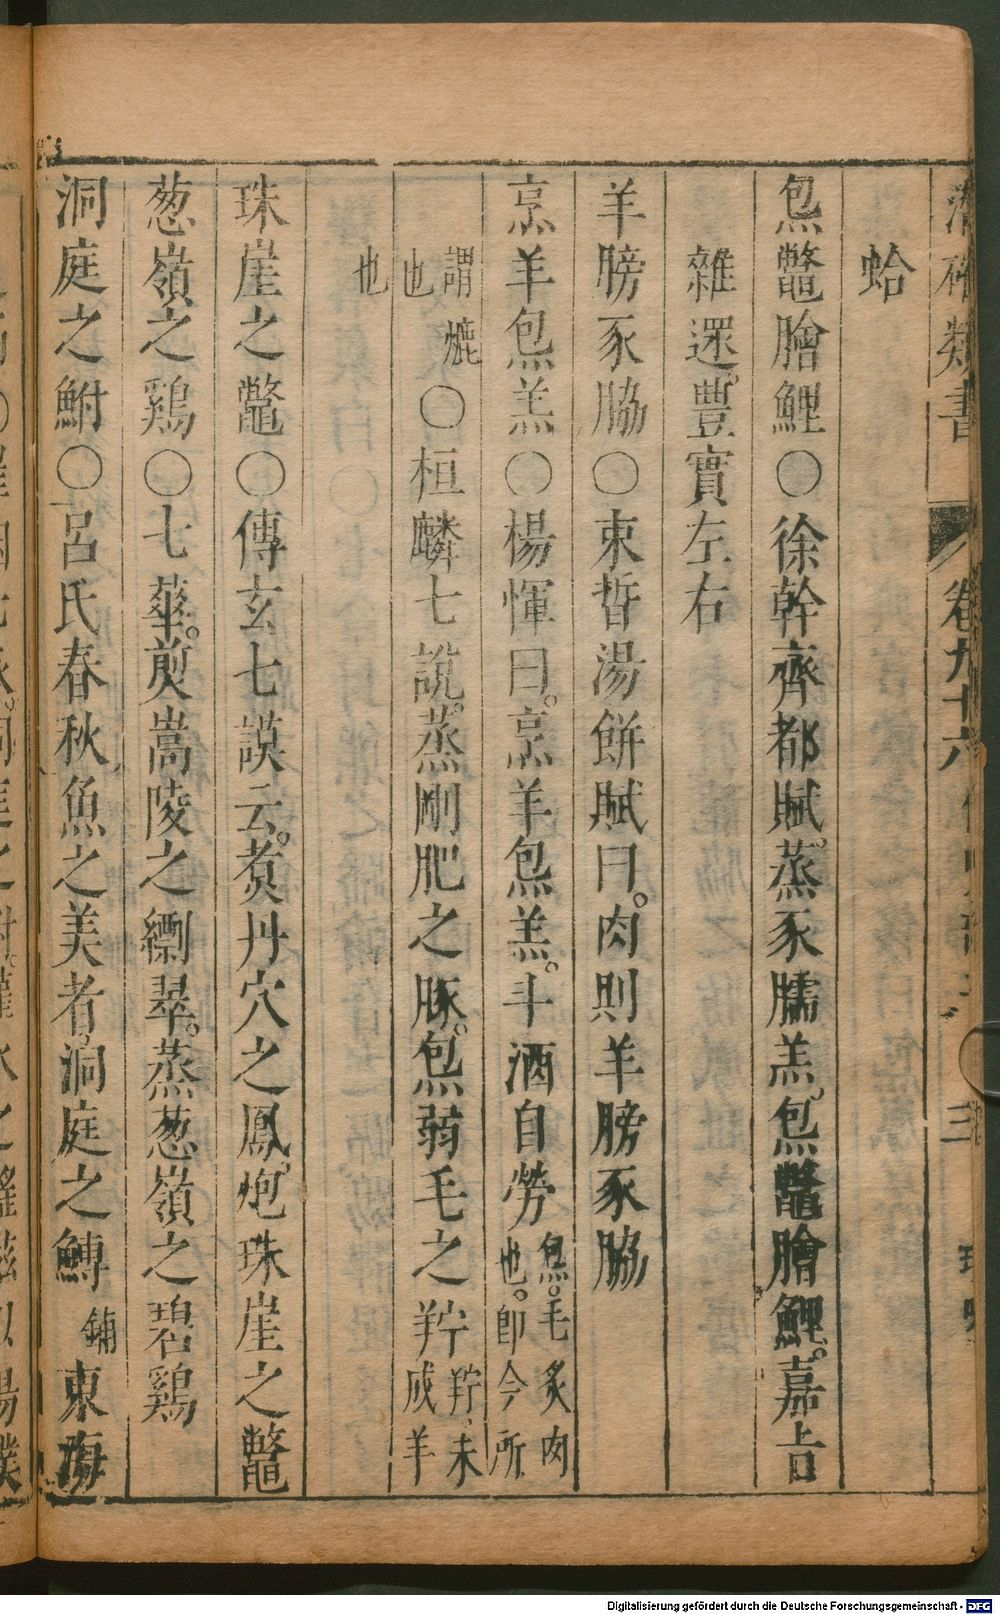 潛確類書 卷九十六 三
蛤
炰鼈膾鯉○徐幹齊都賦。蒸豕臑羔。炰鼈膾鯉。嘉旨
雜遝。豐實左右
羊膀豕脇○束晳湯餅賦曰。肉則羊膀豕脇
烹羊炰羔○楊惲曰。烹羊炰羔。斗酒自勞炰。毛炙肉也。卽今所
謂爊也○桓麟七說。蒸剛肥之豚。炰弱毛之羜羜、未成羊
也
珠崖之鼈○傅玄七謨云。煑丹穴之鳳。炮珠崖之鼈
葱嶺之鷄○七蕐。煎嵩陵之翠。蒸葱嶺之碧鷄
洞庭之鮒○呂氏春秋魚之美者、洞庭之鱄鋪東海
Digitalisierung gefördert durch die Deutsche Forschungsgemeinschaft - DFG